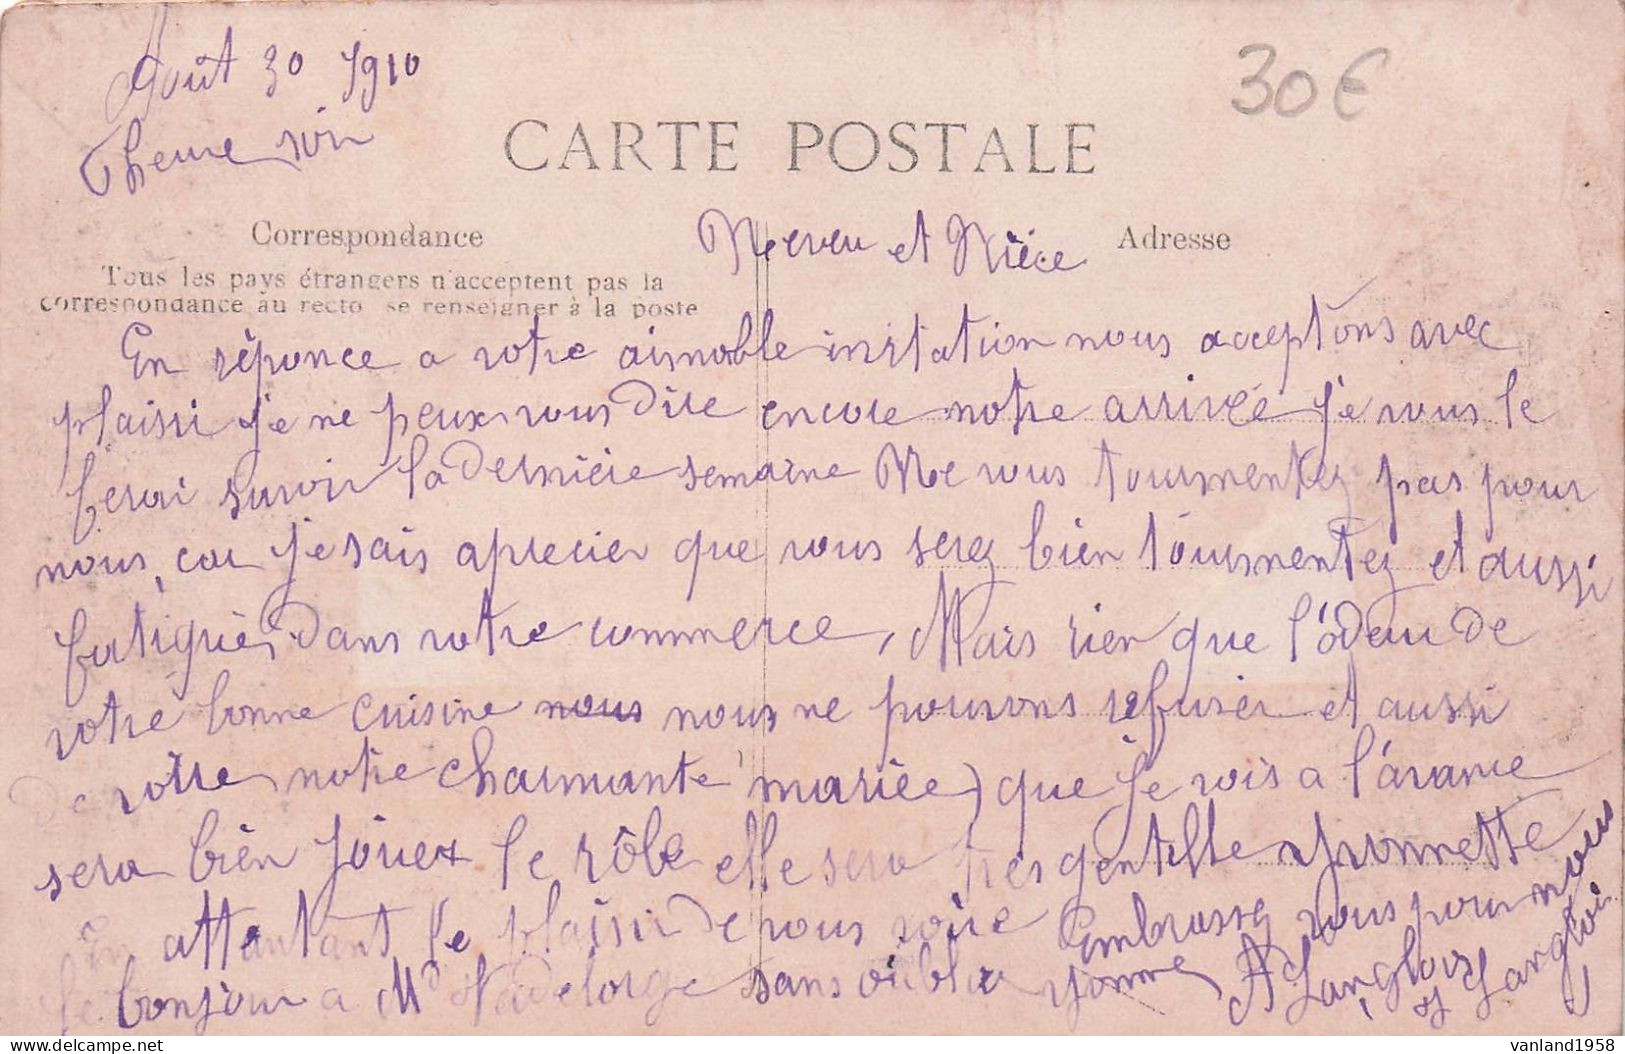 Août 30 1910
30€
CARTE POSTALE
Correspondance
Adresse
Tous les pays étrangers n'acceptent pas la
correspondance au recto se renseigner à la poste
Neveu et Nièce
En réponce a votre aismable invitation nous acceptons avec
plaisir je ne peux vous dire encore notre arrivée je vous le
ferai savoir la dernière semaine Ne vous tourmentez pas pour
nous, car je sais aprecier que vous serez bien tourmentez et aussi
fatigués dans votre commerce, Mais rien que l'odeur de
votre bonne cuisine nous nous ne pouvons refuser et aussi
de votre notre charmante mariée) que je vois a l'avance
sera bien jouer le rôle elle sera tres gentille Yvonnette
En attentant le plaisir de vous voire Embrassez vous pour nous
le bonjour a Md Nadelorge sans oublier Yvonne A Langlois
Y Langlois
vanland1958